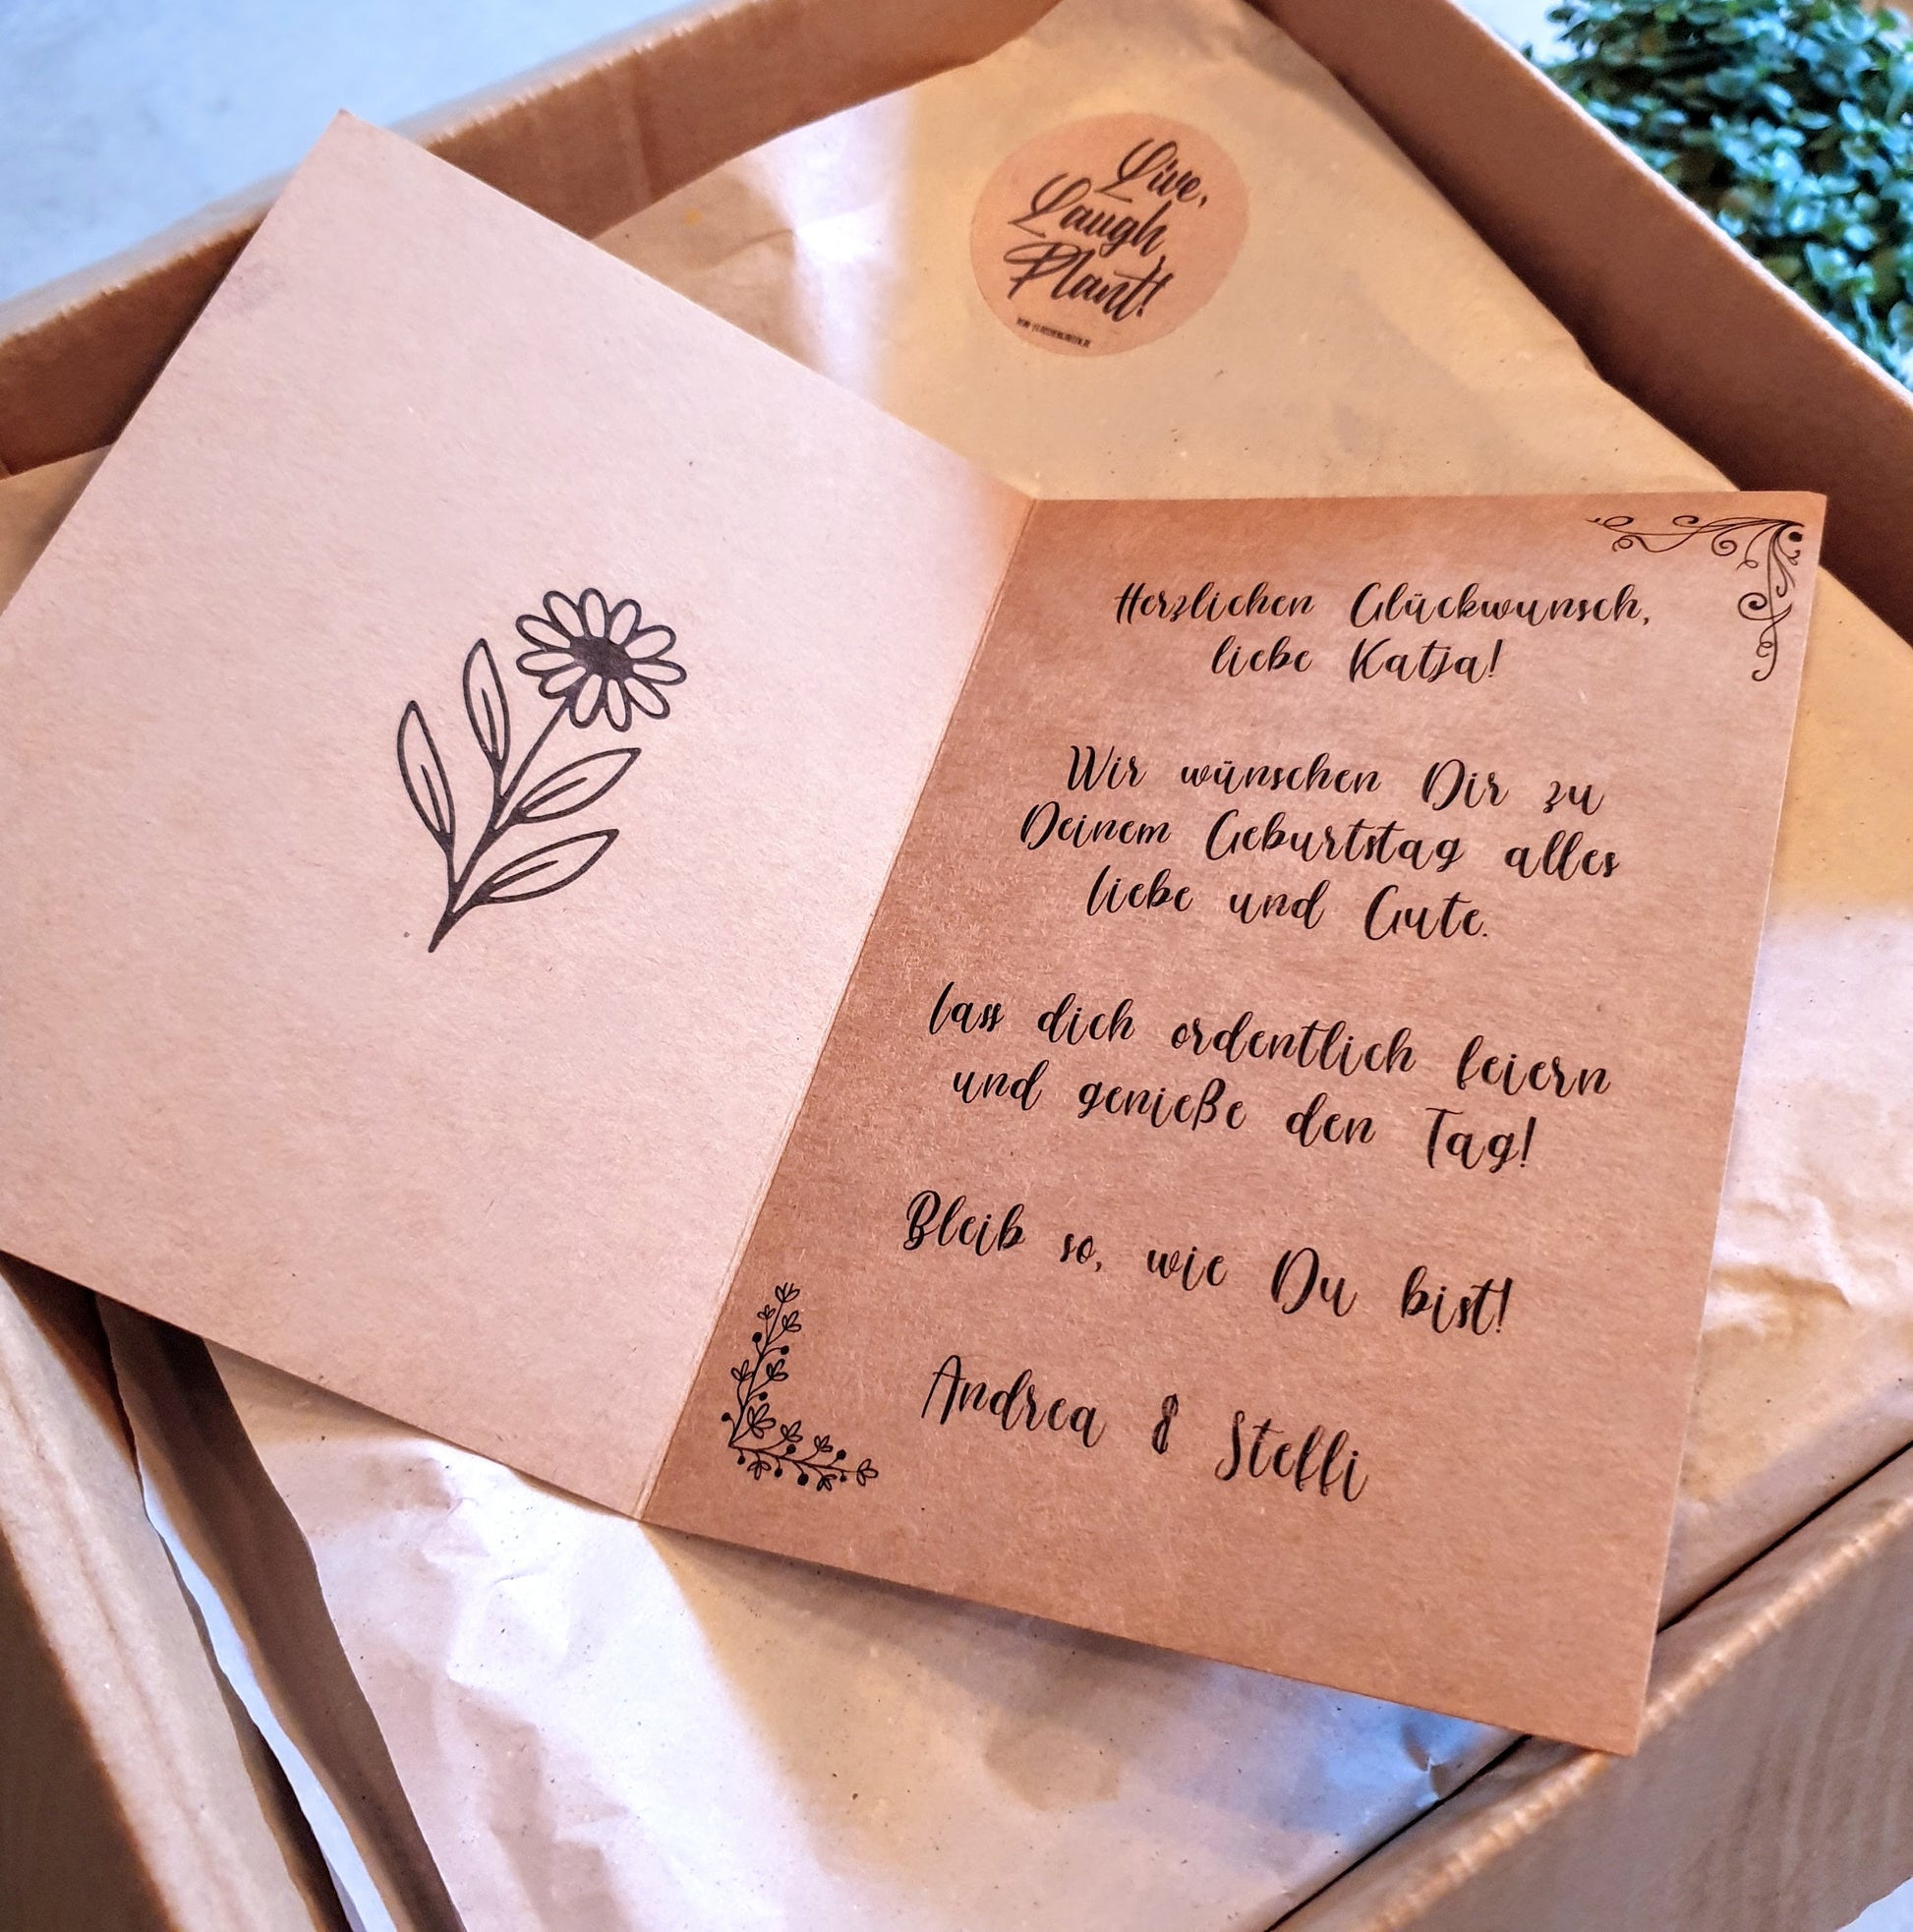 Live,
Laugh
Plant!
Herzlichen Glückwunsch,
liebe Katja!
Wir wünschen Dir zu
Deinem Geburtstag alles
liebe und Gute.
lass dich ordentlich feiern
und genieße den Tag!
Bleib so, wie Du bist!
Andrea & Steffi